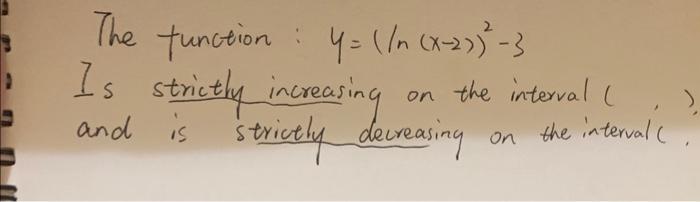 The function : y = (ln (x-2))² - 3
Is strictly increasing on the interval ( , ).
and is strictly decreasing on the interval ( ,